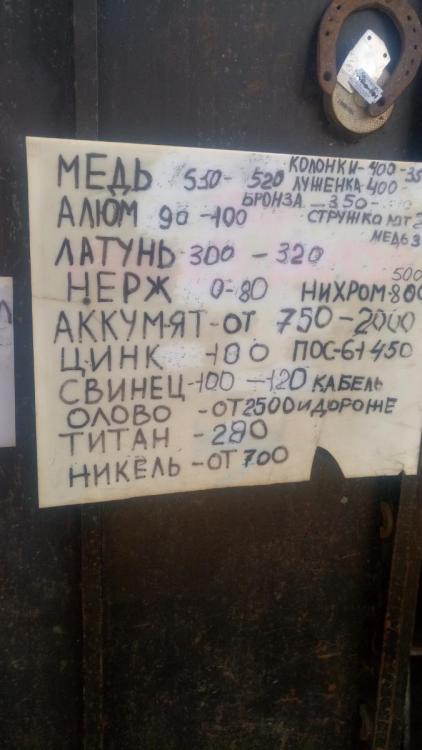 МЕДЬ 550-520 КОЛОНКИ-400-35
ЛУЖЕНКА-400-
БРОНЗА -350-
АЛЮМ 90-100 СТРУЖКА ЛАТ 2
МЕДЬ 3
ЛАТУНЬ-300-320
НЕРЖ 0-80 НИХРОМ-800
500
АККУМ-ЯТ-ОТ 750-2000
ЦИНК -100 ПОС-61 450
СВИНЕЦ-100-120 КАБЕЛЬ
ОЛОВО -ОТ2500 И ДОРОЖЕ
ТИТАН -280
НИКЕЛЬ-ОТ 700